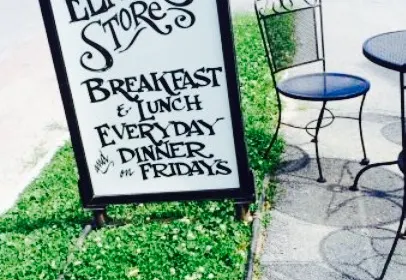 STORES
BREAKFAST
& LUNCH
EVERYDAY
and DINNER
on FRIDAYS